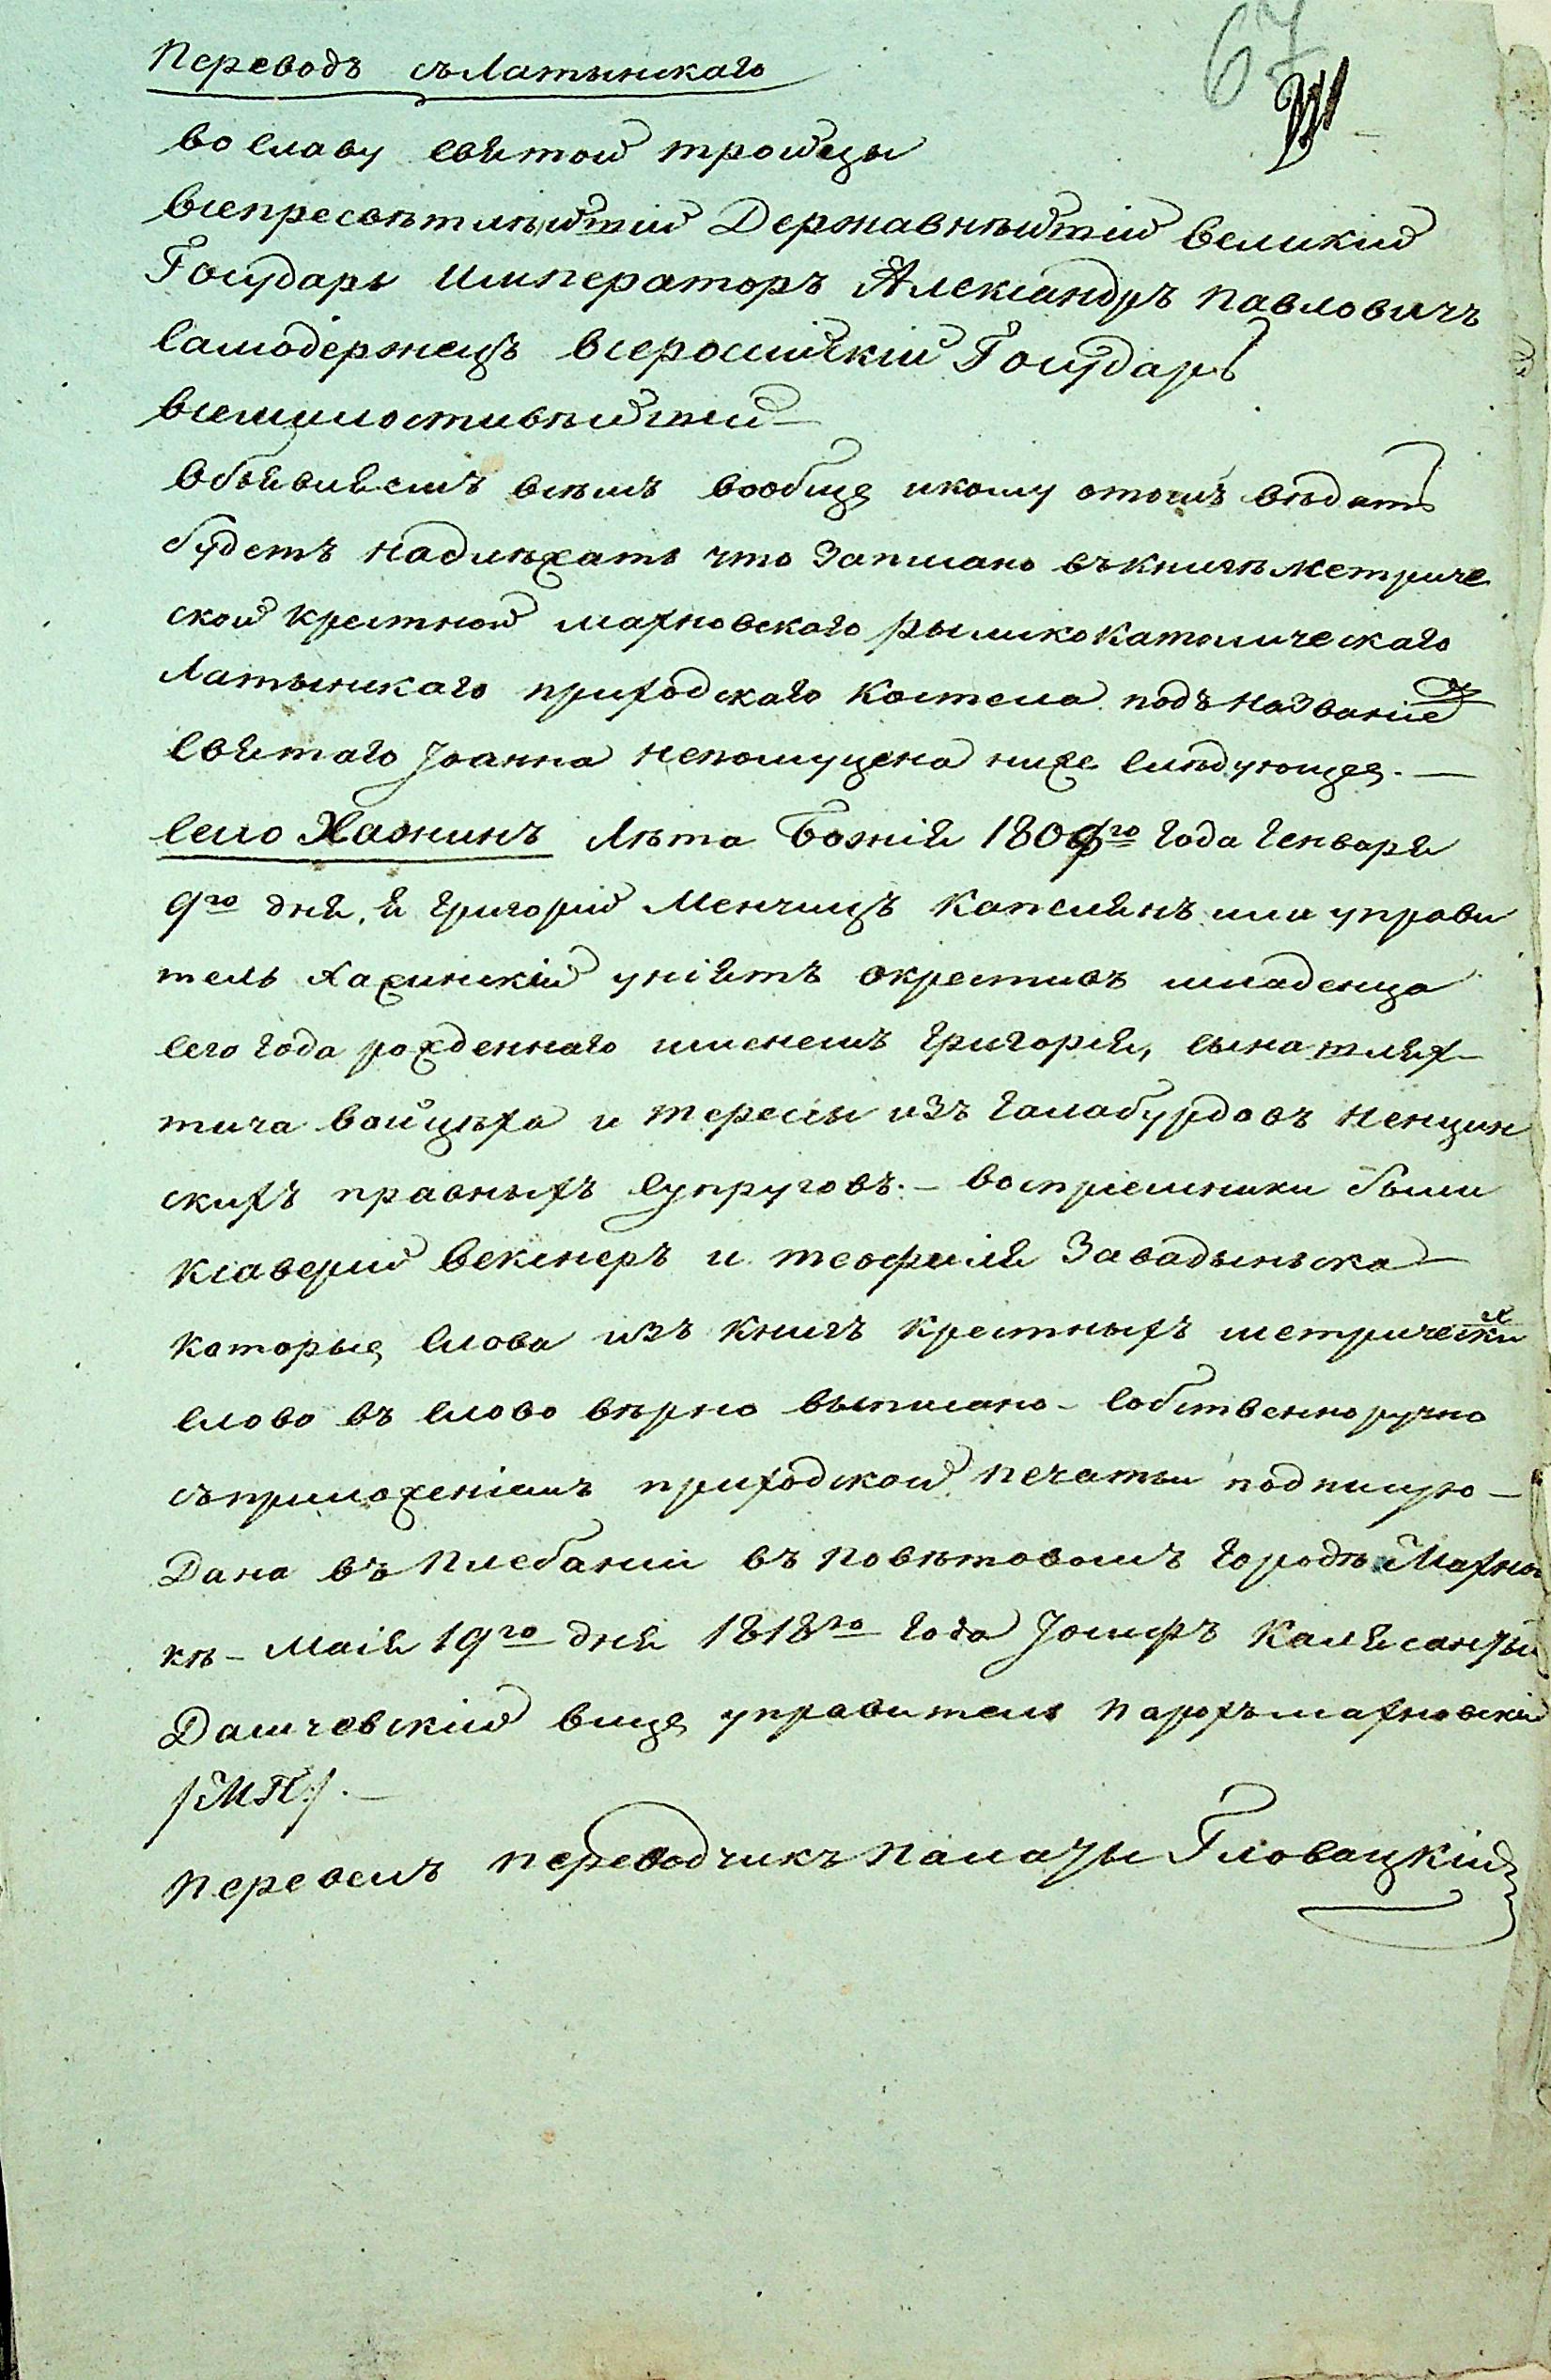 67
Переводъ съ Латынскаго
Во Славу Святой тройцы
Всепресвѣтлѣйшій Державнѣйшій Великій
Государь Императоръ Александръ Павловичъ
Самодержецъ Всеросийскій Государь
Всемилостивѣйшій —
Объявляемъ всѣмъ вообще и кому отомъ вѣдать
будетъ надлѣжать что Записано въ книгѣ метриче
ской крестной махновского рымско Католическаго
Латынскаго приходскаго Костела подъ названіем
Святаго Јоанна непомуцена ниже Слѣдующее. —
Село Хажинъ Лѣта Божія 180 го года Генваря
9го дня, я Григорій Менчицъ Капелянъ или управи
тель Хажинскій уніятъ окрестивъ младенца
Сего года рожденнаго именемъ Григорія, сына шлях-
тича Войцѣха и Терессы изъ Галабурдовъ Ненцин
скихъ правныхъ Супруговъ. — Воспріемники были
Ксаверій Векснеръ и Теофиля Завадыньска —
Которые Слова изъ Книгъ Крестныхъ метрических
Слово въ Слово вѣрно выписано – Собственноручно
съ приложеніемъ приходской печати подписую —
Дана въ Плебаніи въ Повѣтовомъ Городѣ Махнов
кѣ – Маія 19го дня 1818го Года Јосифъ Калясантый
Дашчевскій вице управитель Парохъ махновскій
/:МП:/. —
Перевелъ Переводчикъ Палаты Гловацкій